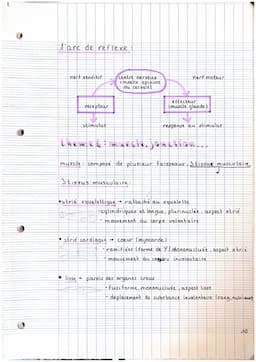 L'arc de réflexe :
nerf sensitif
centre nerveux
(moelle épinière
ou cerveau)
nerf moteur
récepteur
effecteur
(muscle, glande)
stimulus
réponse au stimulus
muscle : composé de plusieur faisceaux, 3 tissus musculaire
3 tissus musculaire :
• strié squelettique → rattaché au squelette
• cylindriques et longue, plurinuclée, aspect strié
• mouvement du corps volontaire
• strié cardiaque → coeur (myocarde)
• ramifiées (forme de Y), mononuclée, aspect strié
• mouvement du involontaire
• lisse → parois des organes creux
• fusiforme, mononuclée, aspect lisse
• déplacement de substance involontaire (sang, nutriment)